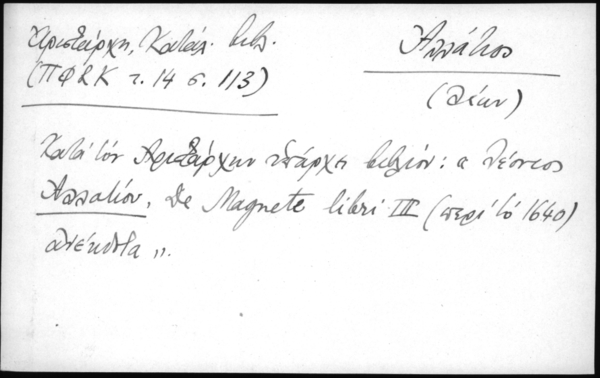 Αρισταρχη, Κατάλ. βιβλ.
(ΠΦΣΚ τ. 14 σ. 113)
Αλλάτιος
(Λέων)
Κατά τόν Αριστάρχην υπάρχει βιβλίον: « Λέοντος
Αλλατίου, De Magnete libri III (περί τό 1640)
ανέκδοτα ».